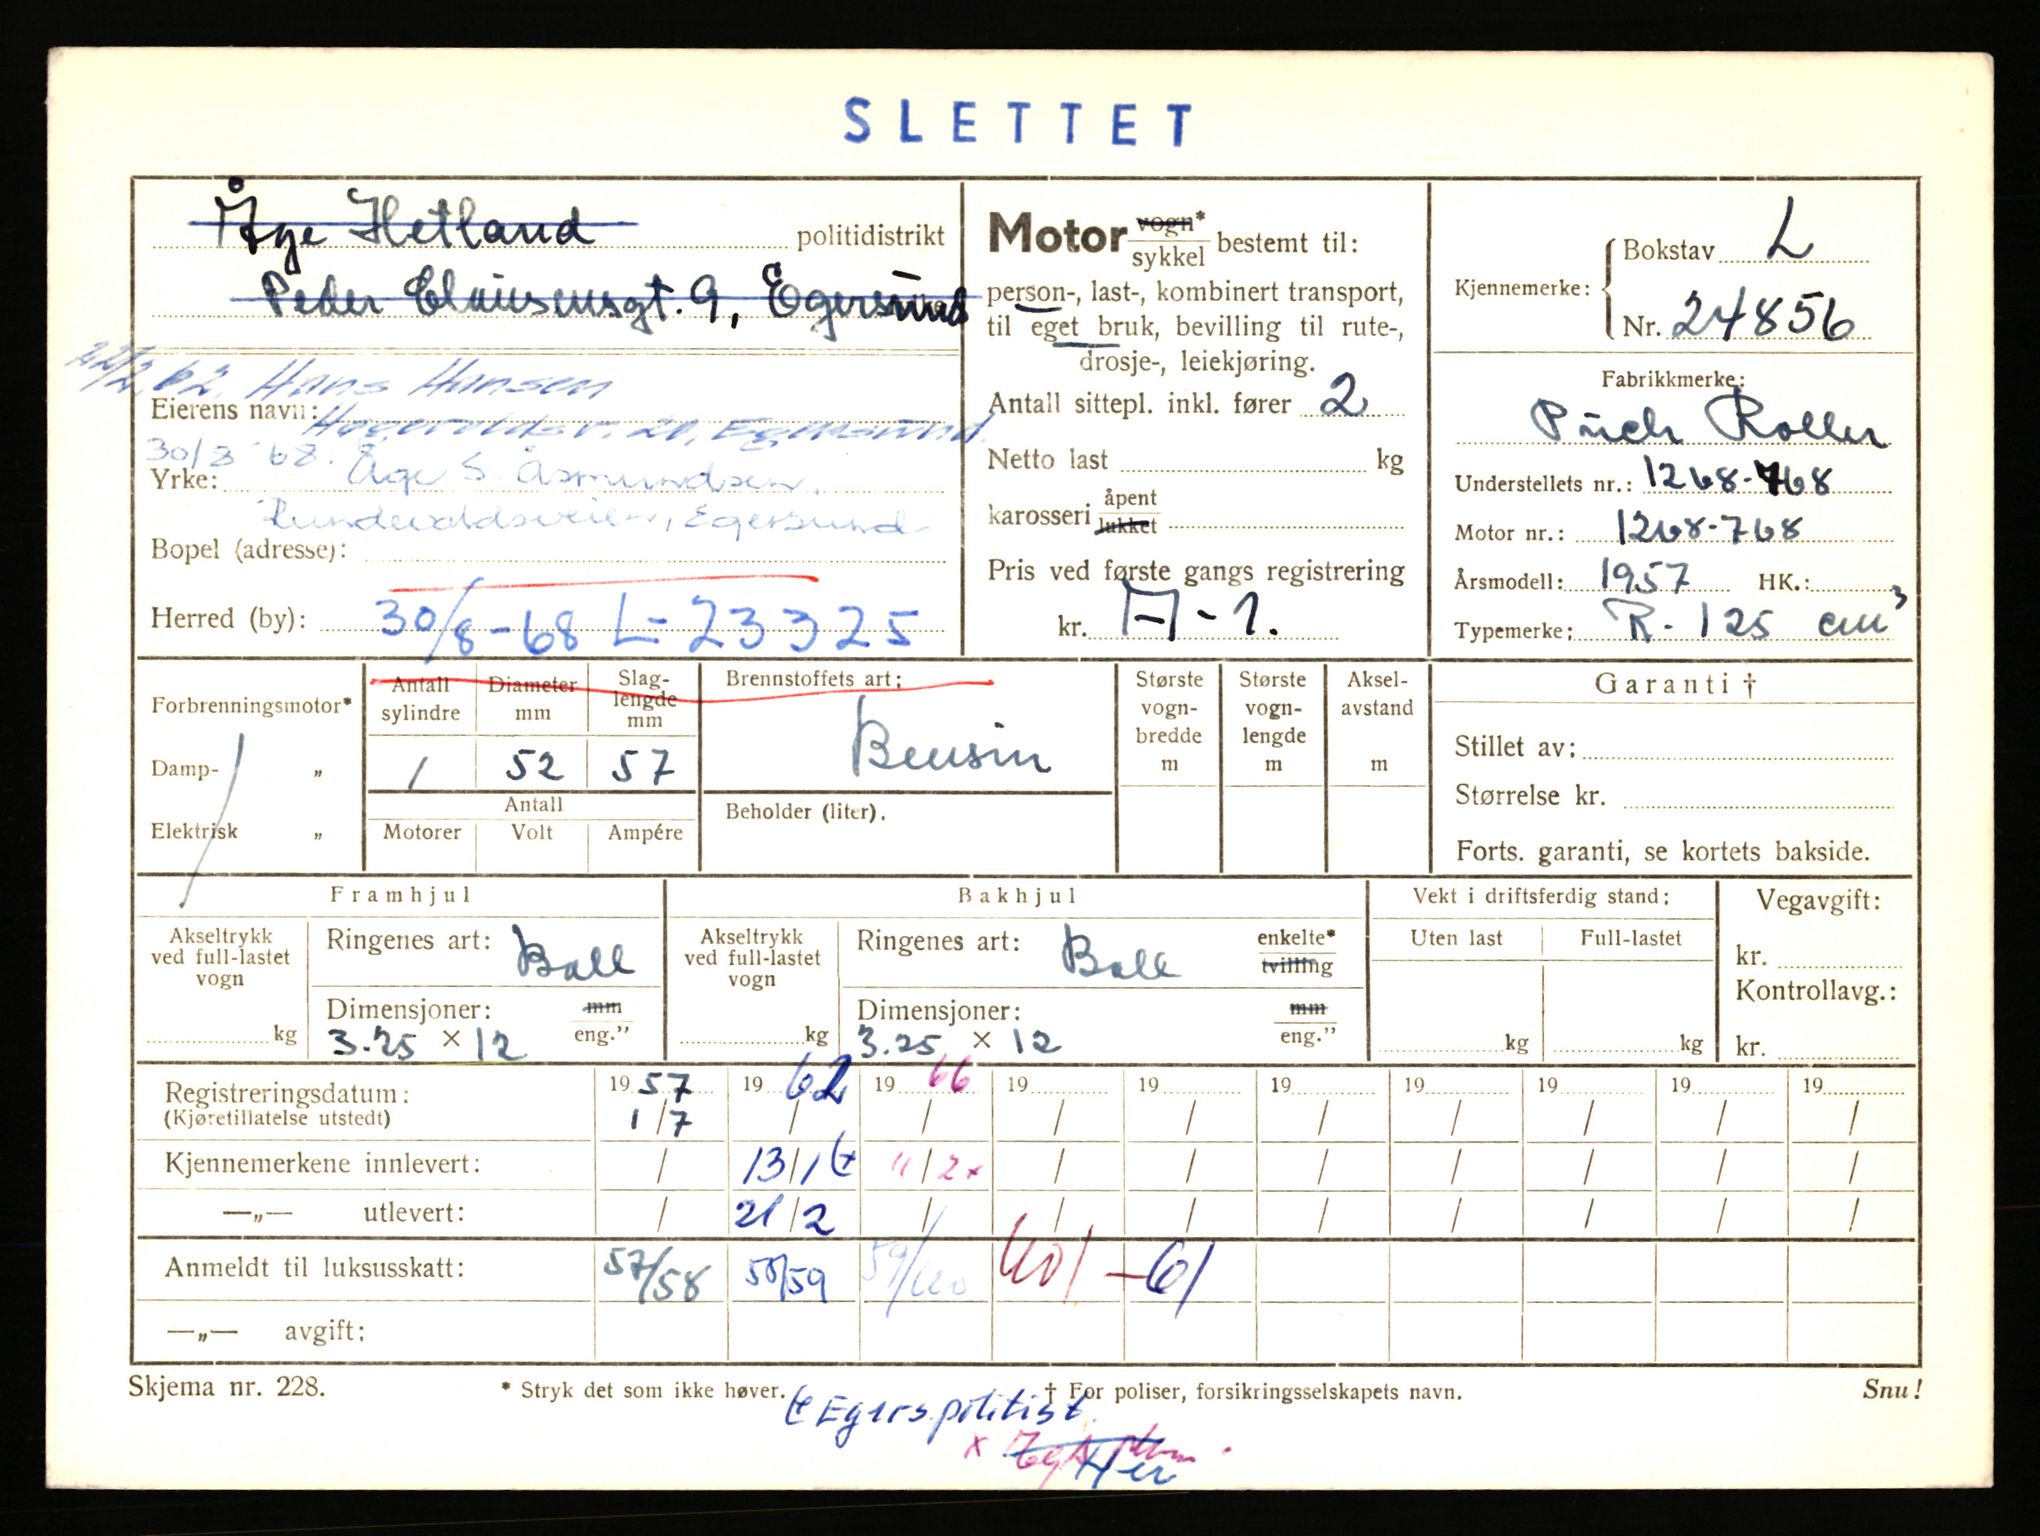 SLETTET
Åge Hetland politidistrikt
Peder Clausensgt. 9, Egersund
22/2 62. Hans Hansen
Eierens navn: 20, Egersund.
30/3 62. Åge S. Åsmundsen.
Yrke:
Rundevoldsveien, Egersund
Bopel (adresse):
Herred (by): 30/8-68 L-23325
Motor vogn*/sykkel bestemt til:
person-, last-, kombinert transport,
til eget bruk, bevilling til rute-,
drosje-, leiekjøring.
Antall sittepl. inkl. fører 2
Netto last kg
karosseri åpent/lukket
Pris ved første gangs registrering
kr. A-1.
Kjennemerke: Bokstav L
Nr. 24856
Fabrikkmerke:
Puch Roller
Understellets nr.: 1268-768
Motor nr.: 1268-768
Årsmodell: 1957 HK.:
Typemerke: R-125 cm³
Forbrenningsmotor*
Damp- „
Elektrisk „
Antall sylindre Diameter mm Slag-lengde mm
1 52 57
Antall
Motorer Volt Ampére
Brennstoffets art:
Bensin
Beholder (liter).
Største vogn-bredde m
Største vogn-lengde m
Aksel-avstand m
Garanti †
Stillet av:
Størrelse kr.
Forts. garanti, se kortets bakside.
Framhjul
Akseltrykk ved full-lastet vogn
kg
Ringenes art: Ball
Dimensjoner: mm/eng.”
3.25 × 12
Bakhjul
Akseltrykk ved full-lastet vogn
kg
Ringenes art: Ball enkelte*/tvilling
Dimensjoner: mm/eng.”
3.25 × 12
Vekt i driftsferdig stand:
Uten last Full-lastet
kg kg
Vegavgift:
kr.
Kontrollavg.:
kr.
Registreringsdatum: 19 57 19 62 19 66 19 19 19 19 19 19 19
(Kjøretillatelse utstedt) 1/7 / / / / / / / / /
Kjennemerkene innlevert: / 13/1 11/2 x / / / / / / /
—„— utlevert: / 21/2 / / / / / / / /
Anmeldt til luksusskatt: 57/58 58/59 59/60 60/ -61
—„— avgift:
Skjema nr. 228. * Stryk det som ikke høver. † For poliser, forsikringsselskapets navn. Snu!
Egers.politist.
x
Her